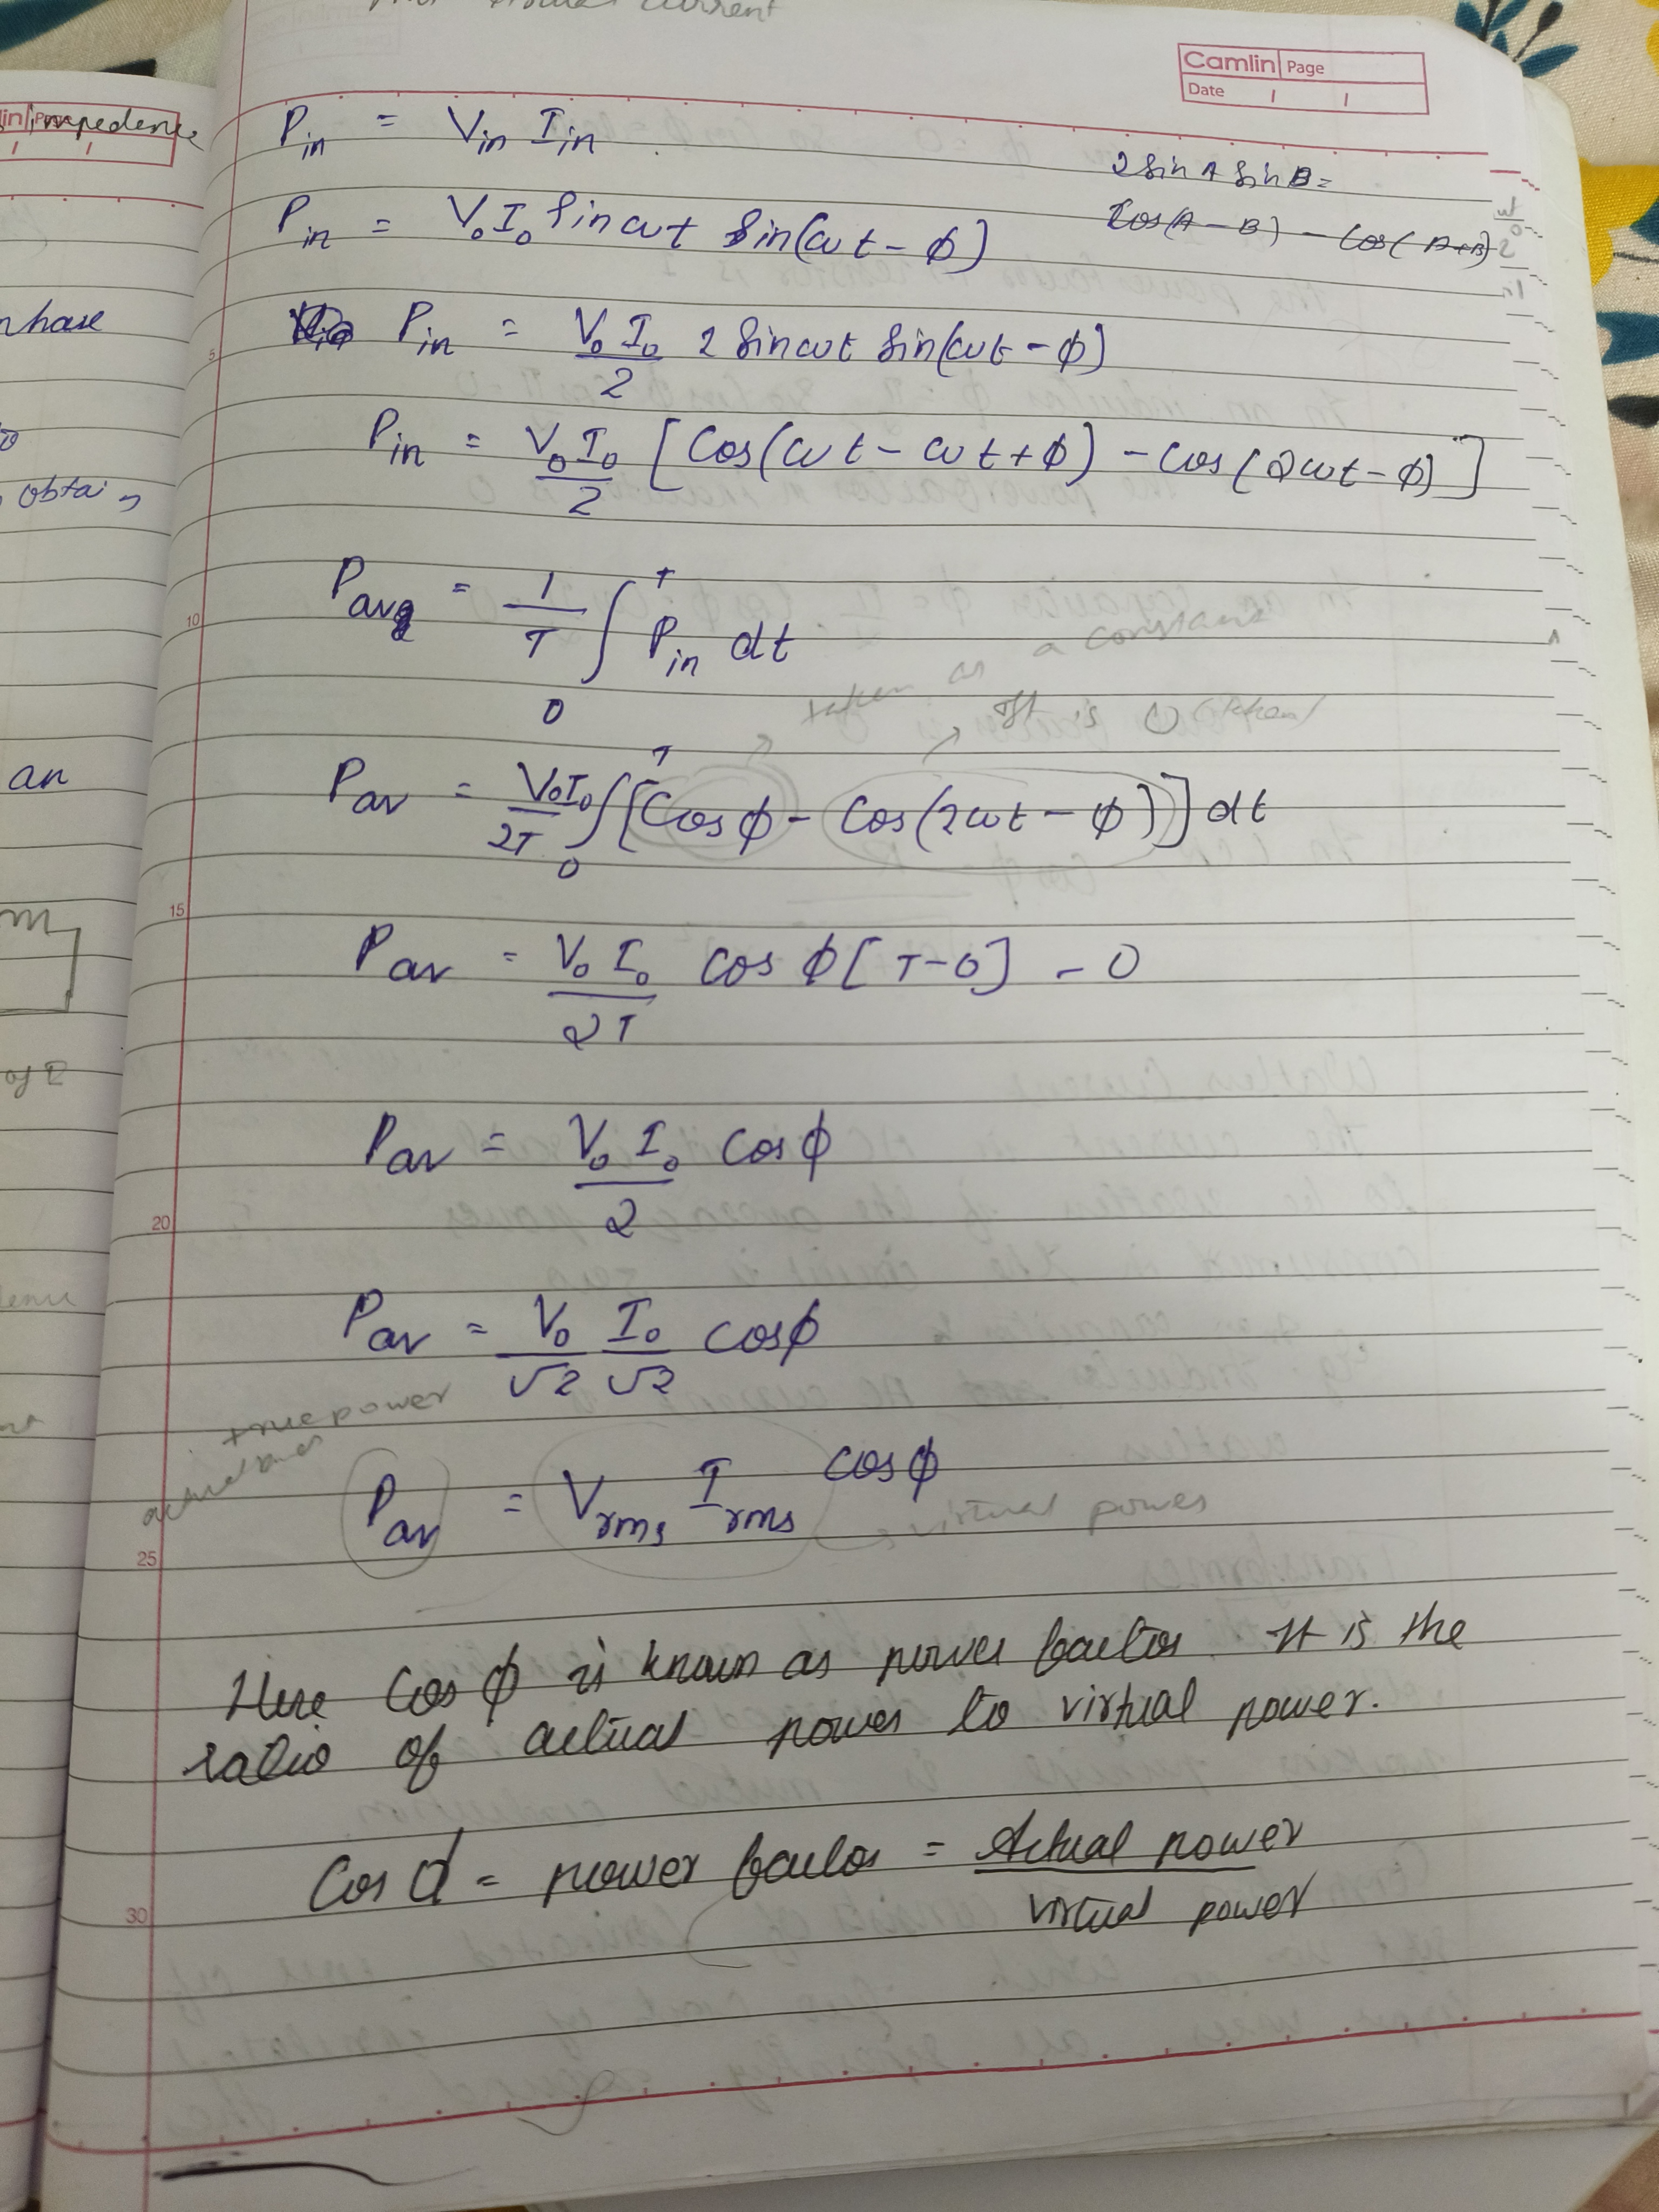 current
Camlin Page
Date / /
impedence
P_in = V_in I_in
2 Sin A Sin B =
Cos(A - B) - Cos(A+B)
P_in = V₀I₀ Sin ωt Sin(ωt - ϕ)
P_in = V₀ I₀/2 2 Sin ωt Sin(ωt - ϕ)
P_in = V₀ I₀/2 [Cos(ωt - ωt + ϕ) - Cos(2ωt - ϕ)]
P_avg = 1/T ∫₀ᵀ P_in dt
taken as a constant
It is 0
P_av = V₀I₀/2T ∫₀ᵀ [Cos ϕ - Cos(2ωt - ϕ)] dt
P_av = V₀ I₀/2T cos ϕ [T-0] - 0
P_av = V₀ I₀/2 Cos ϕ
P_av = V₀/√2 I₀/√2 cos ϕ
true power
P_av = V_rms I_rms cos ϕ
virtual power
Here Cos ϕ is known as power factor. It is the
ratio of actual power to virtual power.
Cos ϕ = power factor = Actual power/virtual power
phase
obtain
an
of
5
10
15
20
25
30